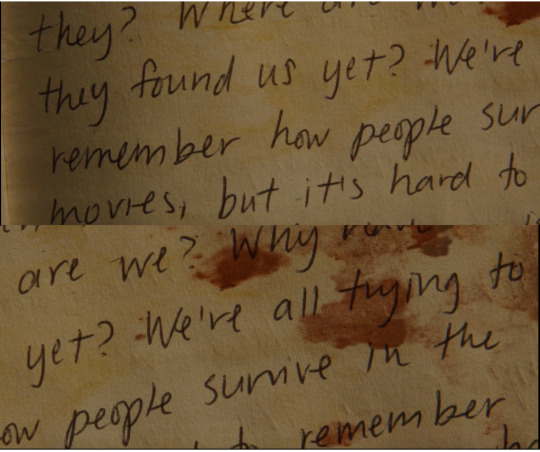 they? Where are we?
they found us yet? We're
remember how people sur
movies, but it's hard to
are we? Why have
yet? We're all trying to
ow people survive in the
to remember